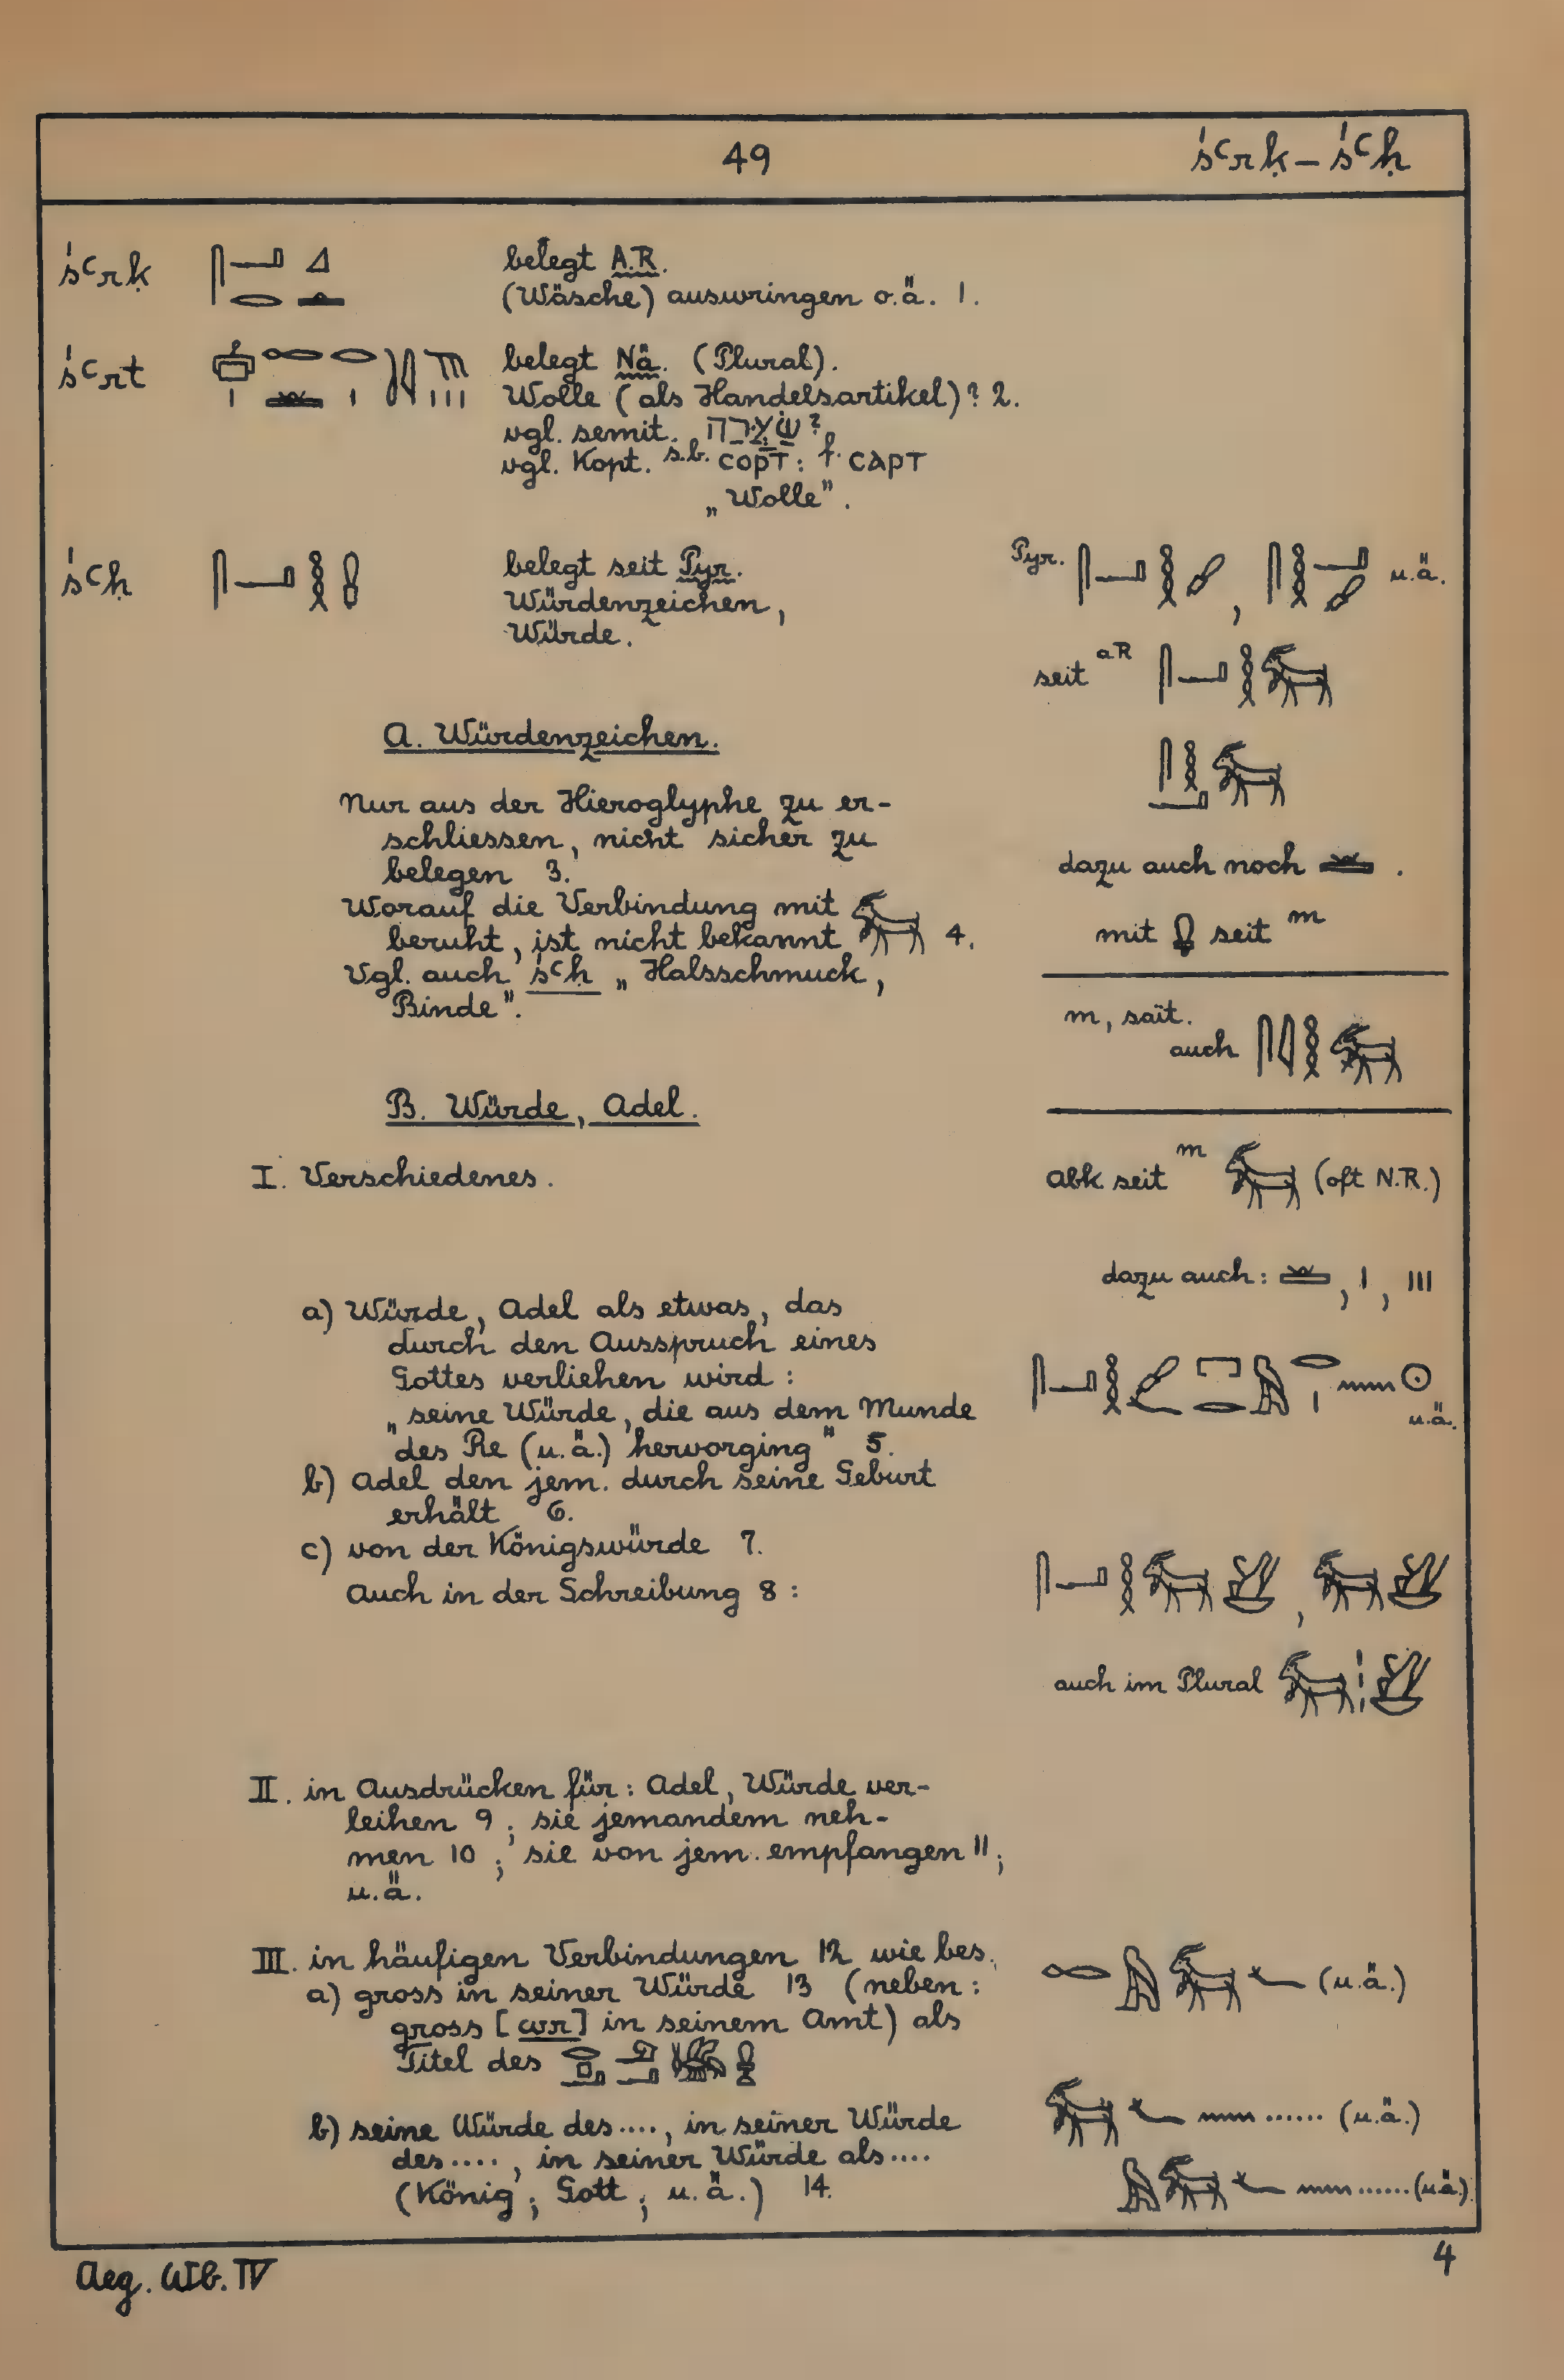 49
ś꜂rḳ – ś꜂ḥ
ś꜂rḳ
belegt A.R.
(Wäsche) auswringen o.ä. 1.
ś꜂rt
belegt Nä. (Plural).
Wolle (als Handelsartikel)? 2.
vgl. semit. שַׂעֲרָה?
vgl. Kopt. s.b. ⲥⲟⲣⲧ: f. ⲥⲁⲣⲧ
„Wolle".
ś꜂ḥ
belegt seit Pyr.
Würdenzeichen,
Würde.
Pyr. , u.ä.
seit aR
A. Würdenzeichen.
Nur aus der Hieroglyphe zu er-
schliessen, nicht sicher zu
belegen 3.
Worauf die Verbindung mit
beruht, ist nicht bekannt 4.
Vgl. auch ś꜂ḥ „Halsschmuck,
Binde".
dazu auch noch .
mit seit m
m, saït.
auch
B. Würde, Adel.
I. Verschiedenes.
Abk. seit m (oft N.R.)
dazu auch: , I , III
a) Würde, Adel als etwas, das
durch den Ausspruch eines
Gottes verliehen wird:
„seine Würde, die aus dem Munde
des Re (u.ä.) hervorging" 5.
u.ä.
b) Adel den jem. durch seine Geburt
erhält 6.
c) von der Königswürde 7.
Auch in der Schreibung 8:
auch im Plural
II. in Ausdrücken für: Adel, Würde ver-
leihen 9; sie jemandem neh-
men 10; sie von jem. empfangen 11;
u.ä.
III. in häufigen Verbindungen 12 wie bes.
a) gross in seiner Würde 13 (neben:
gross [wr] in seinem Amt) als
Titel des
(u.ä.)
b) seine Würde des...., in seiner Würde
des...., in seiner Würde als....
(König; Gott; u.ä.) 14.
...... (u.ä.)
...... (u.ä.)
Aeg. Wb. IV
4